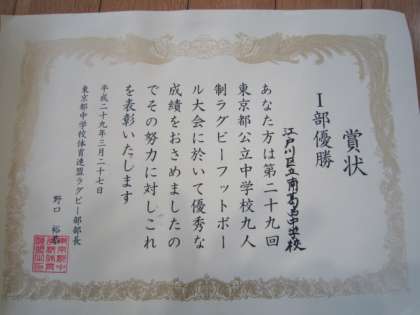 賞状
I部優勝
江戸川区立南葛西中学校
あなた方は第二十九回
東京都公立中学校九人
制ラグビーフットボー
ル大会に於いて優秀な
成績をおさめましたの
でその努力に対しこれ
を表彰いたします
平成二十九年三月二十七日
東京都中学校体育連盟ラグビー部部長
野口 裕